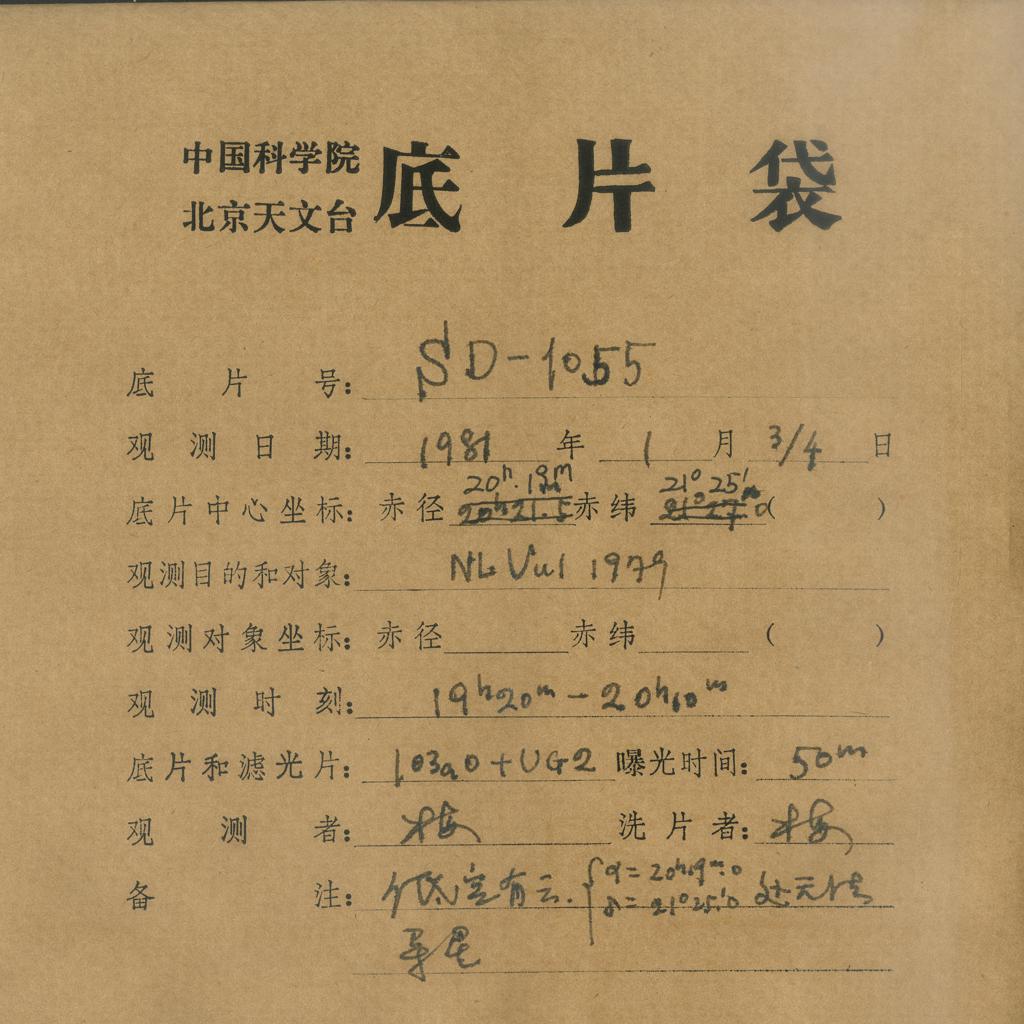 中国科学院
北京天文台 底片袋
底片号: SD-1055
观测日期: 1981年 1月 3/4日
20ʰ.19ᵐ 21°25′
底片中心坐标: 赤径 20ʰ21.5 赤纬 21°27.0 ( )
观测目的和对象: NL Vul 1979
观测对象坐标: 赤径 赤纬 ( )
观测时刻: 19ʰ20ᵐ-20ʰ10ᵐ
底片和滤光片: 103aO+UG2 曝光时间: 50ᵐ
观测者: 梅 洗片者: 梅
备注: 低空有云. {α=20ʰ19ᵐ.0
δ=21°25′.0 处无佳
导星